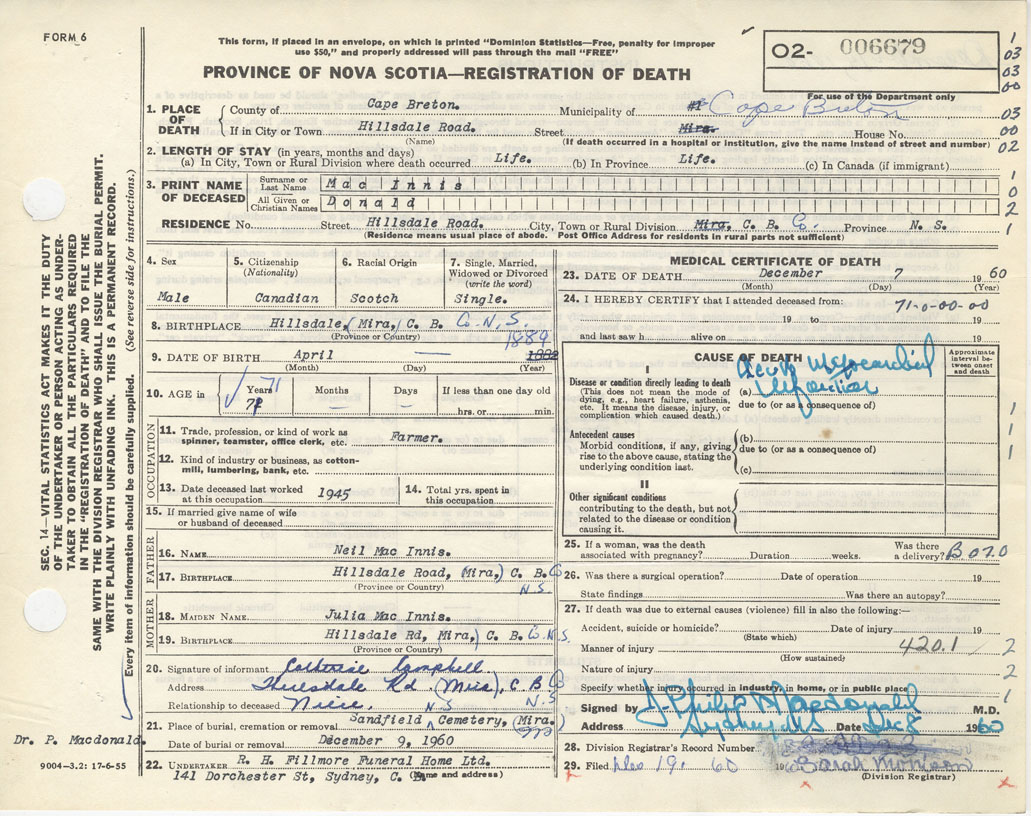 FORM 6
This form, if placed in an envelope, on which is printed "Dominion Statistics—Free, penalty for improper
use $50," and properly addressed will pass through the mail "FREE"
PROVINCE OF NOVA SCOTIA—REGISTRATION OF DEATH
02- 006679
For use of the Department only
1
03
03
00
03
00
02
1
0
2
1
1. PLACE OF DEATH
County of Cape Breton. Municipality of Cape Breton
If in City or Town Hillsdale Road. Street Mira. House No.
(Name) (If death occurred in a hospital or institution, give the name instead of street and number)
2. LENGTH OF STAY (in years, months and days)
(a) In City, Town or Rural Division where death occurred Life. (b) In Province Life. (c) In Canada (if immigrant)
3. PRINT NAME OF DECEASED
Surname or Last Name Mac Innis
All Given or Christian Names Donald
RESIDENCE No. Street Hillsdale Road. City, Town or Rural Division Mira, C. B. Co. Province N. S.
(Residence means usual place of abode. Post Office Address for residents in rural parts not sufficient)
4. Sex
Male
5. Citizenship
(Nationality)
Canadian
6. Racial Origin
Scotch
7. Single, Married,
Widowed or Divorced
(write the word)
Single.
8. BIRTHPLACE Hillsdale, (Mira,) C. B. Co. N. S.
(Province or Country)
1889
9. DATE OF BIRTH April — 1882
(Month) (Day) (Year)
10. AGE in Years 71 Months Days If less than one day old
hrs. or min.
OCCUPATION
11. Trade, profession, or kind of work as
spinner, teamster, office clerk, etc. Farmer.
12. Kind of industry or business, as cotton-
mill, lumbering, bank, etc.
13. Date deceased last worked
at this occupation 1945
14. Total yrs. spent in
this occupation
15. If married give name of wife
or husband of deceased
FATHER
16. NAME Neil Mac Innis.
17. BIRTHPLACE Hillsdale Road, (Mira,) C. B. Co
(Province or Country) N. S.
MOTHER
18. MAIDEN NAME Julia Mac Innis.
19. BIRTHPLACE Hillsdale Rd, (Mira,) C. B. Co. N.S.
(Province or Country)
20. Signature of informant Catherine Campbell
Address Hillsdale Rd (Mira), C B Co
Relationship to deceased Niece. N. S. N.S
21. Place of burial, cremation or removal Sandfield Cemetery, (Mira.)
Date of burial or removal December 9, 1960
22. UNDERTAKER R. H. Fillmore Funeral Home Ltd.
141 Dorchester St, Sydney, C. B.
(Name and address)
MEDICAL CERTIFICATE OF DEATH
23. DATE OF DEATH December 7 1960
(Month) (Day) (Year)
24. I HEREBY CERTIFY that I attended deceased from: 71-0-00-00
19 to 19
and last saw h alive on 19
CAUSE OF DEATH
Approximate interval between onset and death
I
Disease or condition directly leading to death
(This does not mean the mode of
dying, e.g., heart failure, asthenia,
etc. It means the disease, injury, or
complication which caused death.)
(a) Acute Myocardial
Infarction
due to (or as a consequence of)
Antecedent causes
Morbid conditions, if any, giving
rise to the above cause, stating the
underlying condition last.
(b)
due to (or as a consequence of)
(c)
1
1
1
II
Other significant conditions
contributing to the death, but not
related to the disease or condition
causing it.
25. If a woman, was the death
associated with pregnancy? Duration weeks. Was there
a delivery? B070
26. Was there a surgical operation? Date of operation 19
State findings Was there an autopsy?
27. If death was due to external causes (violence) fill in also the following:—
Accident, suicide or homicide? Date of injury 19
(State which)
Manner of injury 420.1 2
(How sustained)
Nature of injury 2
Specify whether injury occurred in industry, in home, or in public place 1
Signed by J. Philip Macdonald M.D.
Address Sydney NS Date Dec 8 1960
28. Division Registrar's Record Number
29. Filed Dec 19. 60 19 Sarah Morrison
(Division Registrar)
SEC. 14—VITAL STATISTICS ACT MAKES IT THE DUTY
OF THE UNDERTAKER OR PERSON ACTING AS UNDER-
TAKER TO OBTAIN ALL THE PARTICULARS REQUIRED
IN THE "REGISTRATION OF DEATH" AND TO FILE THE
SAME WITH THE DIVISION REGISTRAR WHO SHALL ISSUE THE BURIAL PERMIT.
WRITE PLAINLY WITH UNFADING INK. THIS IS A PERMANENT RECORD.
Every item of information should be carefully supplied. (See reverse side for instructions.)
Dr. P. Macdonald.
9004—3.2: 17-6-55